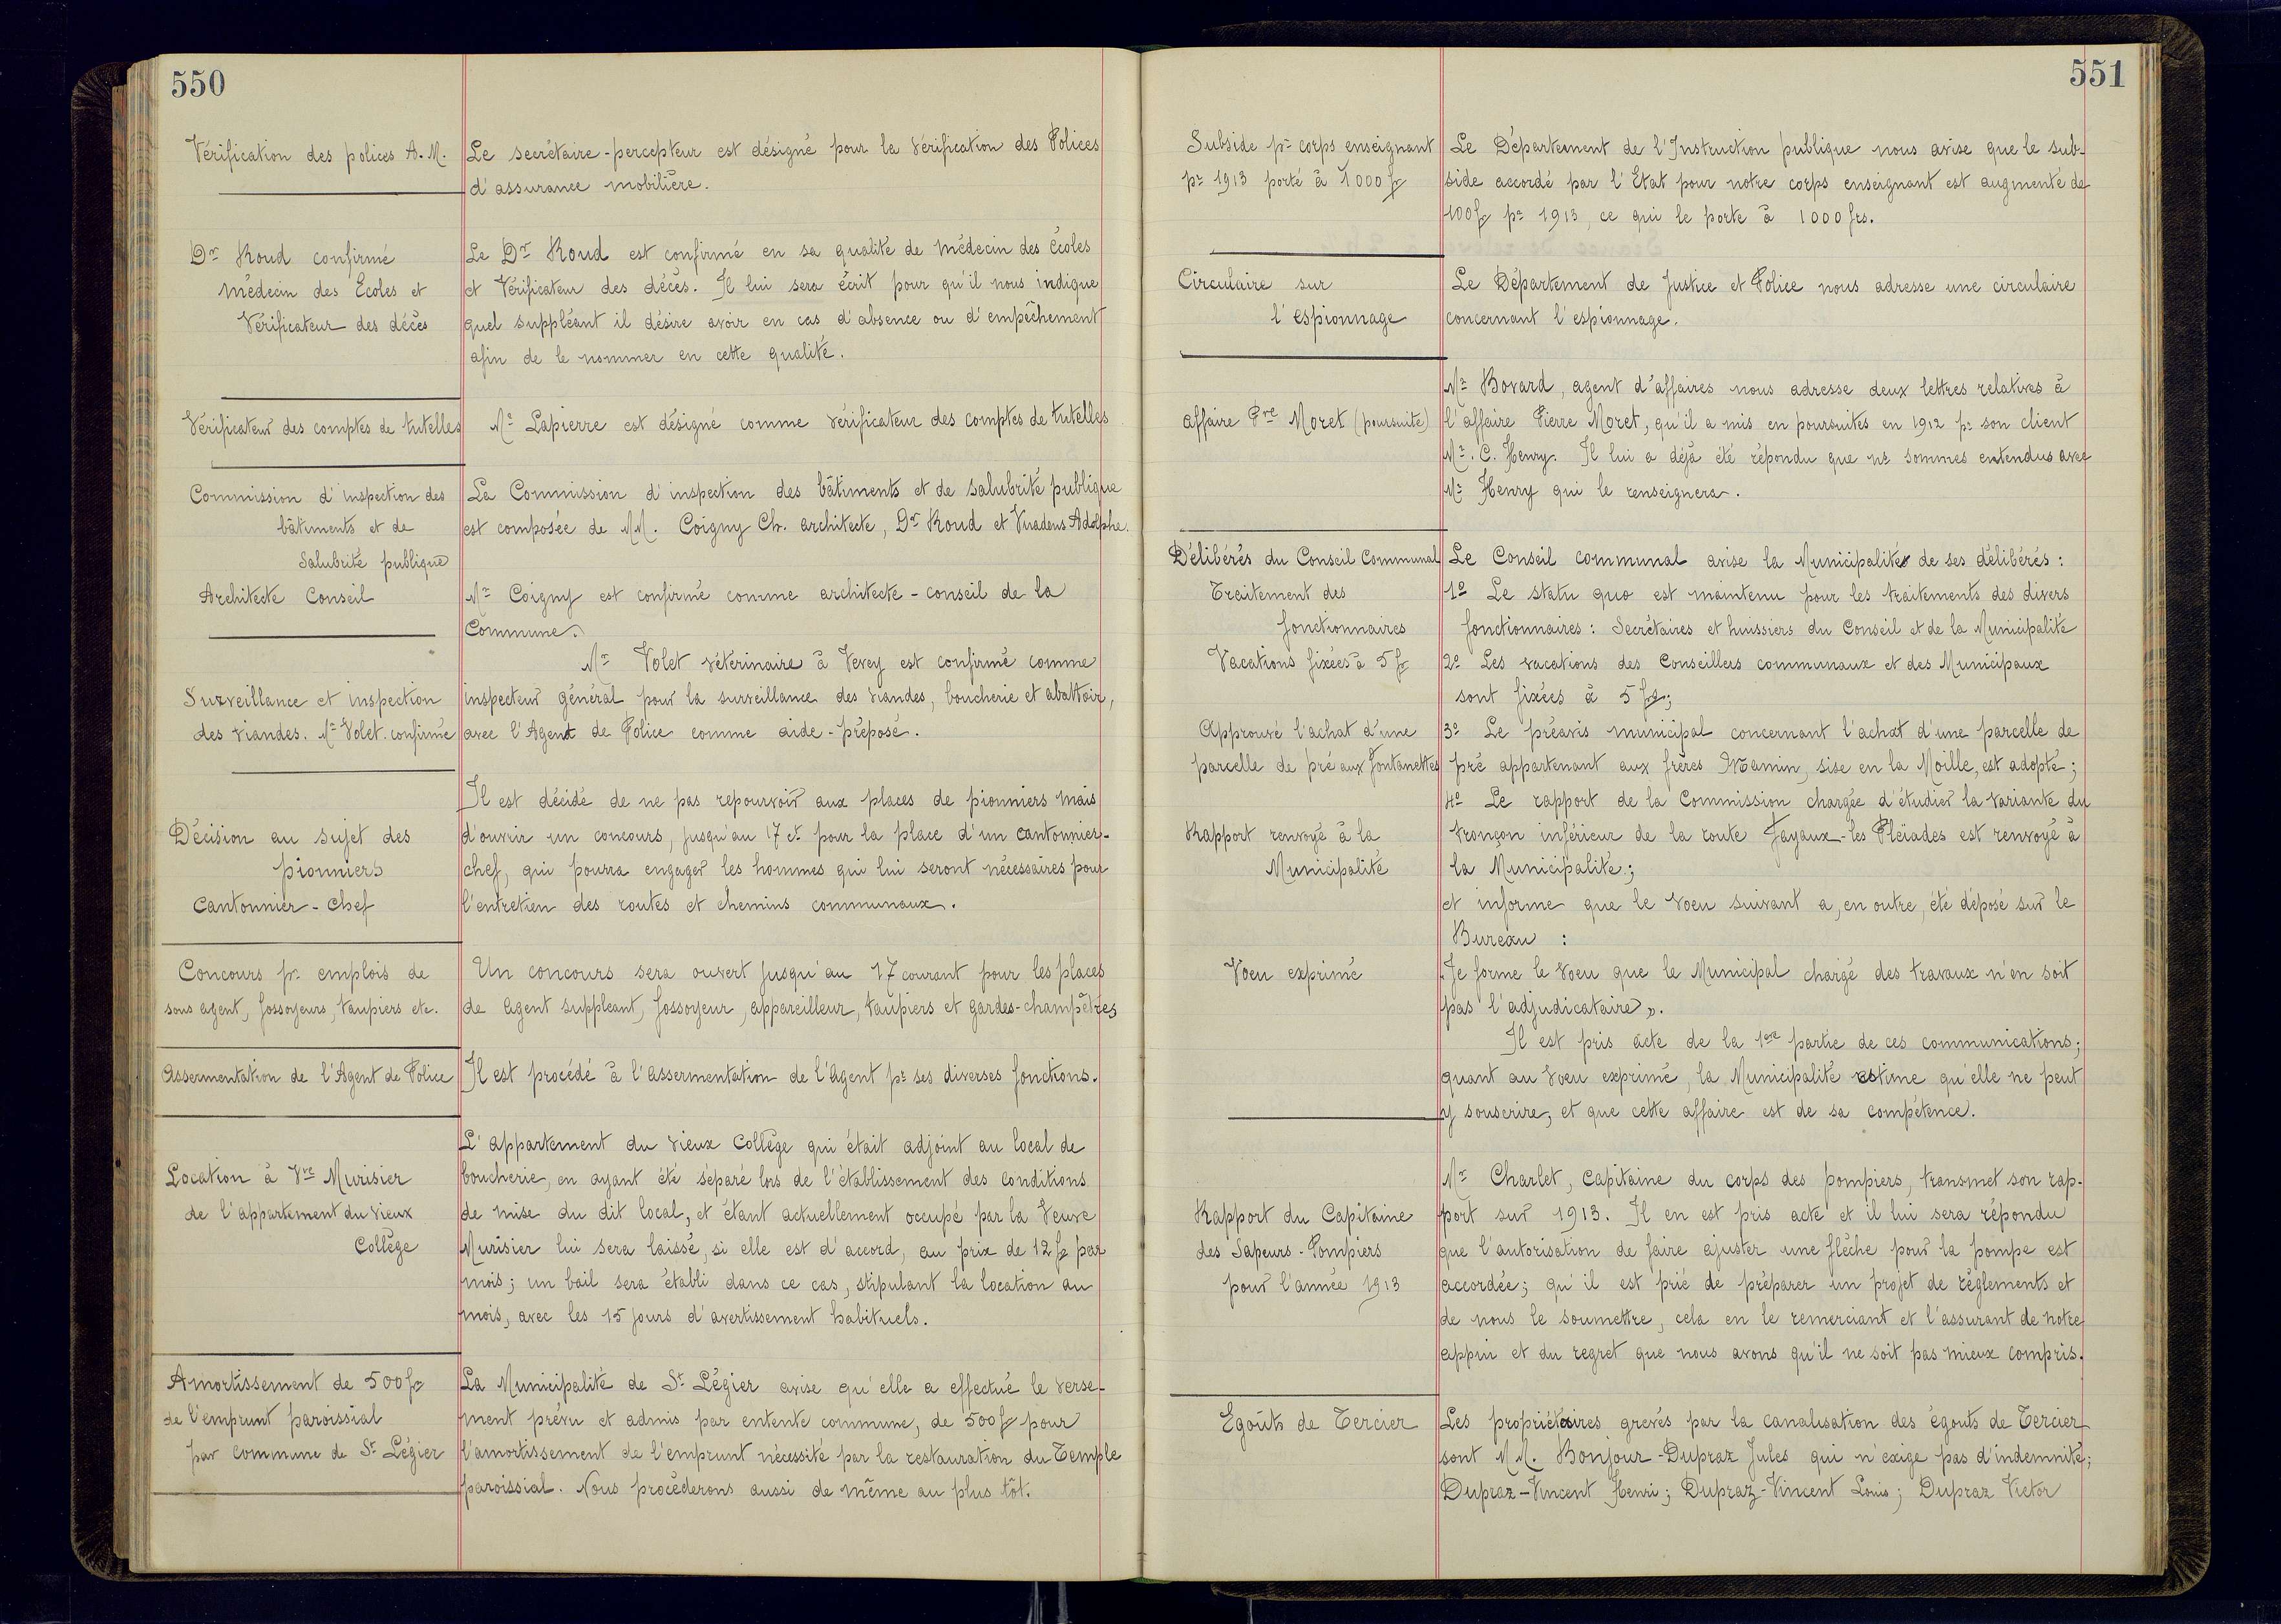 550
Vérification des polices A. M.
Le secrétaire-percepteur est désigné pour la Vérification des Polices
d'assurance mobilière.
Dr Roud confirmé
médecin des Écoles et
Vérificateur des décès
Le Dr Roud est confirmé en sa qualité de médecin des écoles
et Vérificateur des décès. Il lui sera écrit pour qu'il nous indique
quel suppléant il désire avoir en cas d'absence ou d'empêchement
afin de le nommer en cette qualité.
Vérificateur des comptes de tutelles
Mr Lapierre est désigné comme vérificateur des comptes de tutelles
Commission d'inspection des
bâtiments et de
Salubrité publique
La Commission d'inspection des bâtiments et de salubrité publique
est composée de MM. Coigny Ch. architecte, Dr Roud et Vuadens Adolphe.
Architecte Conseil
Mr Coigny est confirmé comme architecte-conseil de la
Commune.
Surveillance et inspection
des viandes. Mr Volet. confirmé
Mr Volet vétérinaire à Vevey est confirmé comme
inspecteur général pour la surveillance des viandes, boucherie et abattoir,
avec l'Agent de Police comme aide-préposé.
Décision au sujet des
pionniers
Cantonnier-Chef
Il est décidé de ne pas repourvoir aux places de pionniers mais
d'ouvrir un concours, jusqu'au 17 ct pour la place d'un cantonnier-
chef, qui pourra engager les hommes qui lui seront nécessaires pour
l'entretien des routes et chemins communaux.
Concours pr emplois de
sous agent, fossoyeurs, taupiers etc.
Un concours sera ouvert jusqu'au 17 courant pour les places
de Agent suppléant, fossoyeur, appareilleur, taupiers et gardes-champêtres
Assermentation de l'Agent de Police
Il est procédé à l'assermentation de l'Agent pr ses diverses fonctions.
Location à Vve Murisier
de l'appartement du Vieux
Collège
L'appartement du Vieux Collège qui était adjoint au local de
boucherie, en ayant été séparé lors de l'établissement des conditions
de mise du dit local, et étant actuellement occupé par la Veuve
Murisier lui sera laissé, si elle est d'accord, au prix de 12 fr par
mois; un bail sera établi dans ce cas, stipulant la location au
mois, avec les 15 jours d'avertissement habituels.
Amortissement de 500 fr
de l'emprunt paroissial
par commune de St Légier
La Municipalité de St Légier avise qu'elle a effectué le verse-
ment prévu et admis par entente commune, de 500 fr pour
l'amortissement de l'emprunt nécessité par la restauration du Temple
paroissial. Nous procèderons aussi de même au plus tôt.
551
Subside pr corps enseignant
pr 1913 porté à 1000 fr
Le Département de l'Instruction publique nous avise que le sub-
side accordé par l'Etat pour notre corps enseignant est augmenté de
100 fr pr 1913, ce qui le porte à 1000 frs.
Circulaire sur
l'espionnage
Le Département de Justice et Police nous adresse une circulaire
concernant l'espionnage.
affaire Pre Moret (poursuite)
Mr Bovard, agent d'affaires nous adresse deux lettres relatives à
l'affaire Pierre Moret, qu'il a mis en poursuites en 1912 pr son client
Mr. C. Henry. Il lui a déjà été répondu que ns sommes entendus avec
Mr Henry qui le renseignera.
Délibérés du Conseil Communal
Le Conseil communal avise la Municipalité de ses délibérés:
Traitement des
fonctionnaires
1o Le statu quo est maintenu pour les traitements des divers
fonctionnaires: Secrétaires et huissiers du Conseil et de la Municipalité
Vacations fixées à 5 fr
2o Les vacations des Conseillers communaux et des Municipaux
sont fixées à 5 frs;
Approuvé l'achat d'une
parcelle de pré aux fontanettes
3o Le préavis municipal concernant l'achat d'une parcelle de
pré appartenant aux frères Mamin, sise en la Moille, est adopté;
Rapport renvoyé à la
Municipalité
4o Le rapport de la Commission chargée d'étudier la variante du
tronçon inférieur de la route Fayaux-les Pléiades est renvoyé à
la Municipalité;
et informe que le voeu suivant a, en outre, été déposé sur le
Bureau :
Voeu exprimé
"Je forme le voeu que le Municipal chargé des travaux n'en soit
pas l'adjudicataire".
Il est pris acte de la 1ère partie de ces communications;
quant au voeu exprimé, la Municipalité estime qu'elle ne peut
y souscrire, et que cette affaire est de sa compétence.
Rapport du Capitaine
des Sapeurs-Pompiers
pour l'année 1913
Mr Charlet, Capitaine du corps des pompiers, transmet son rap-
port sur 1913. Il en est pris acte et il lui sera répondu
que l'autorisation de faire ajuster une flèche pour la pompe est
accordée; qu'il est prié de préparer un projet de règlements et
de nous le soumettre, cela en le remerciant et l'assurant de notre
appui et du regret que nous avons qu'il ne soit pas mieux compris.
Egoûts de Tercier
Les propriétaires grevés par la canalisation des égouts de Tercier
sont MM. Bonjour-Dupraz Jules qui n'exige pas d'indemnité;
Dupraz-Vincent Henri; Dupraz-Vincent Louis; Dupraz Victor